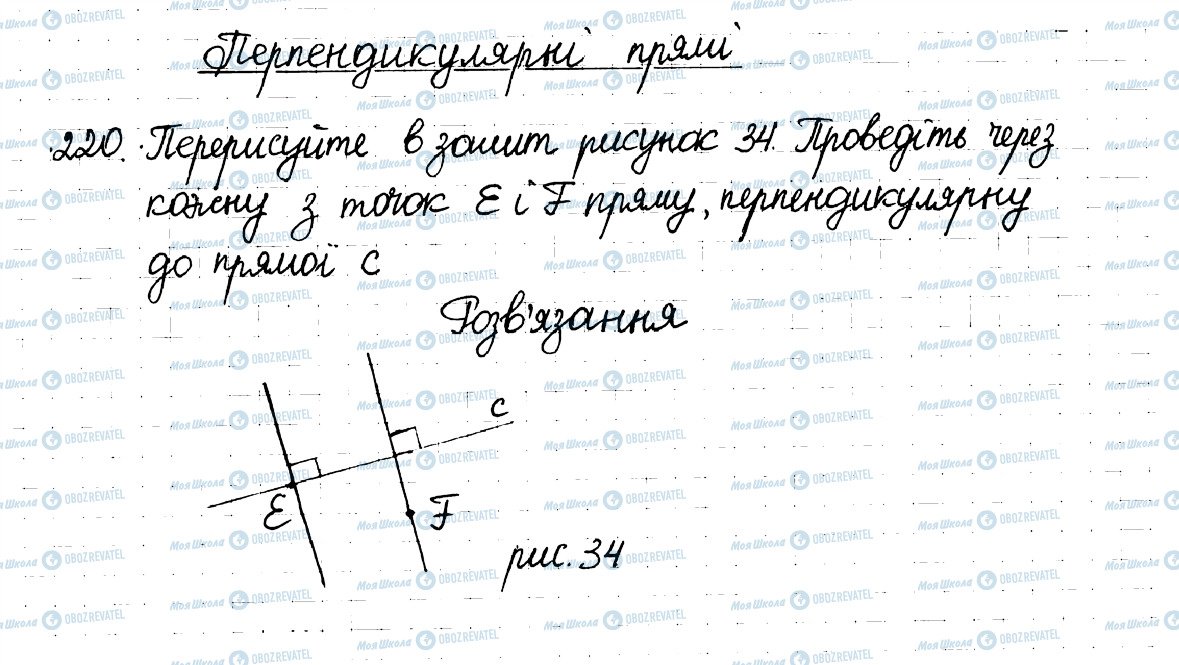 Перпендикулярні прямі
220. Перерисуйте в зошит рисунок 34. Проведіть через
кожну з точок E і F пряму, перпендикулярну
до прямої c
Розв'язання
c
E
F
рис. 34
Моя Школа OBOZREVATEL